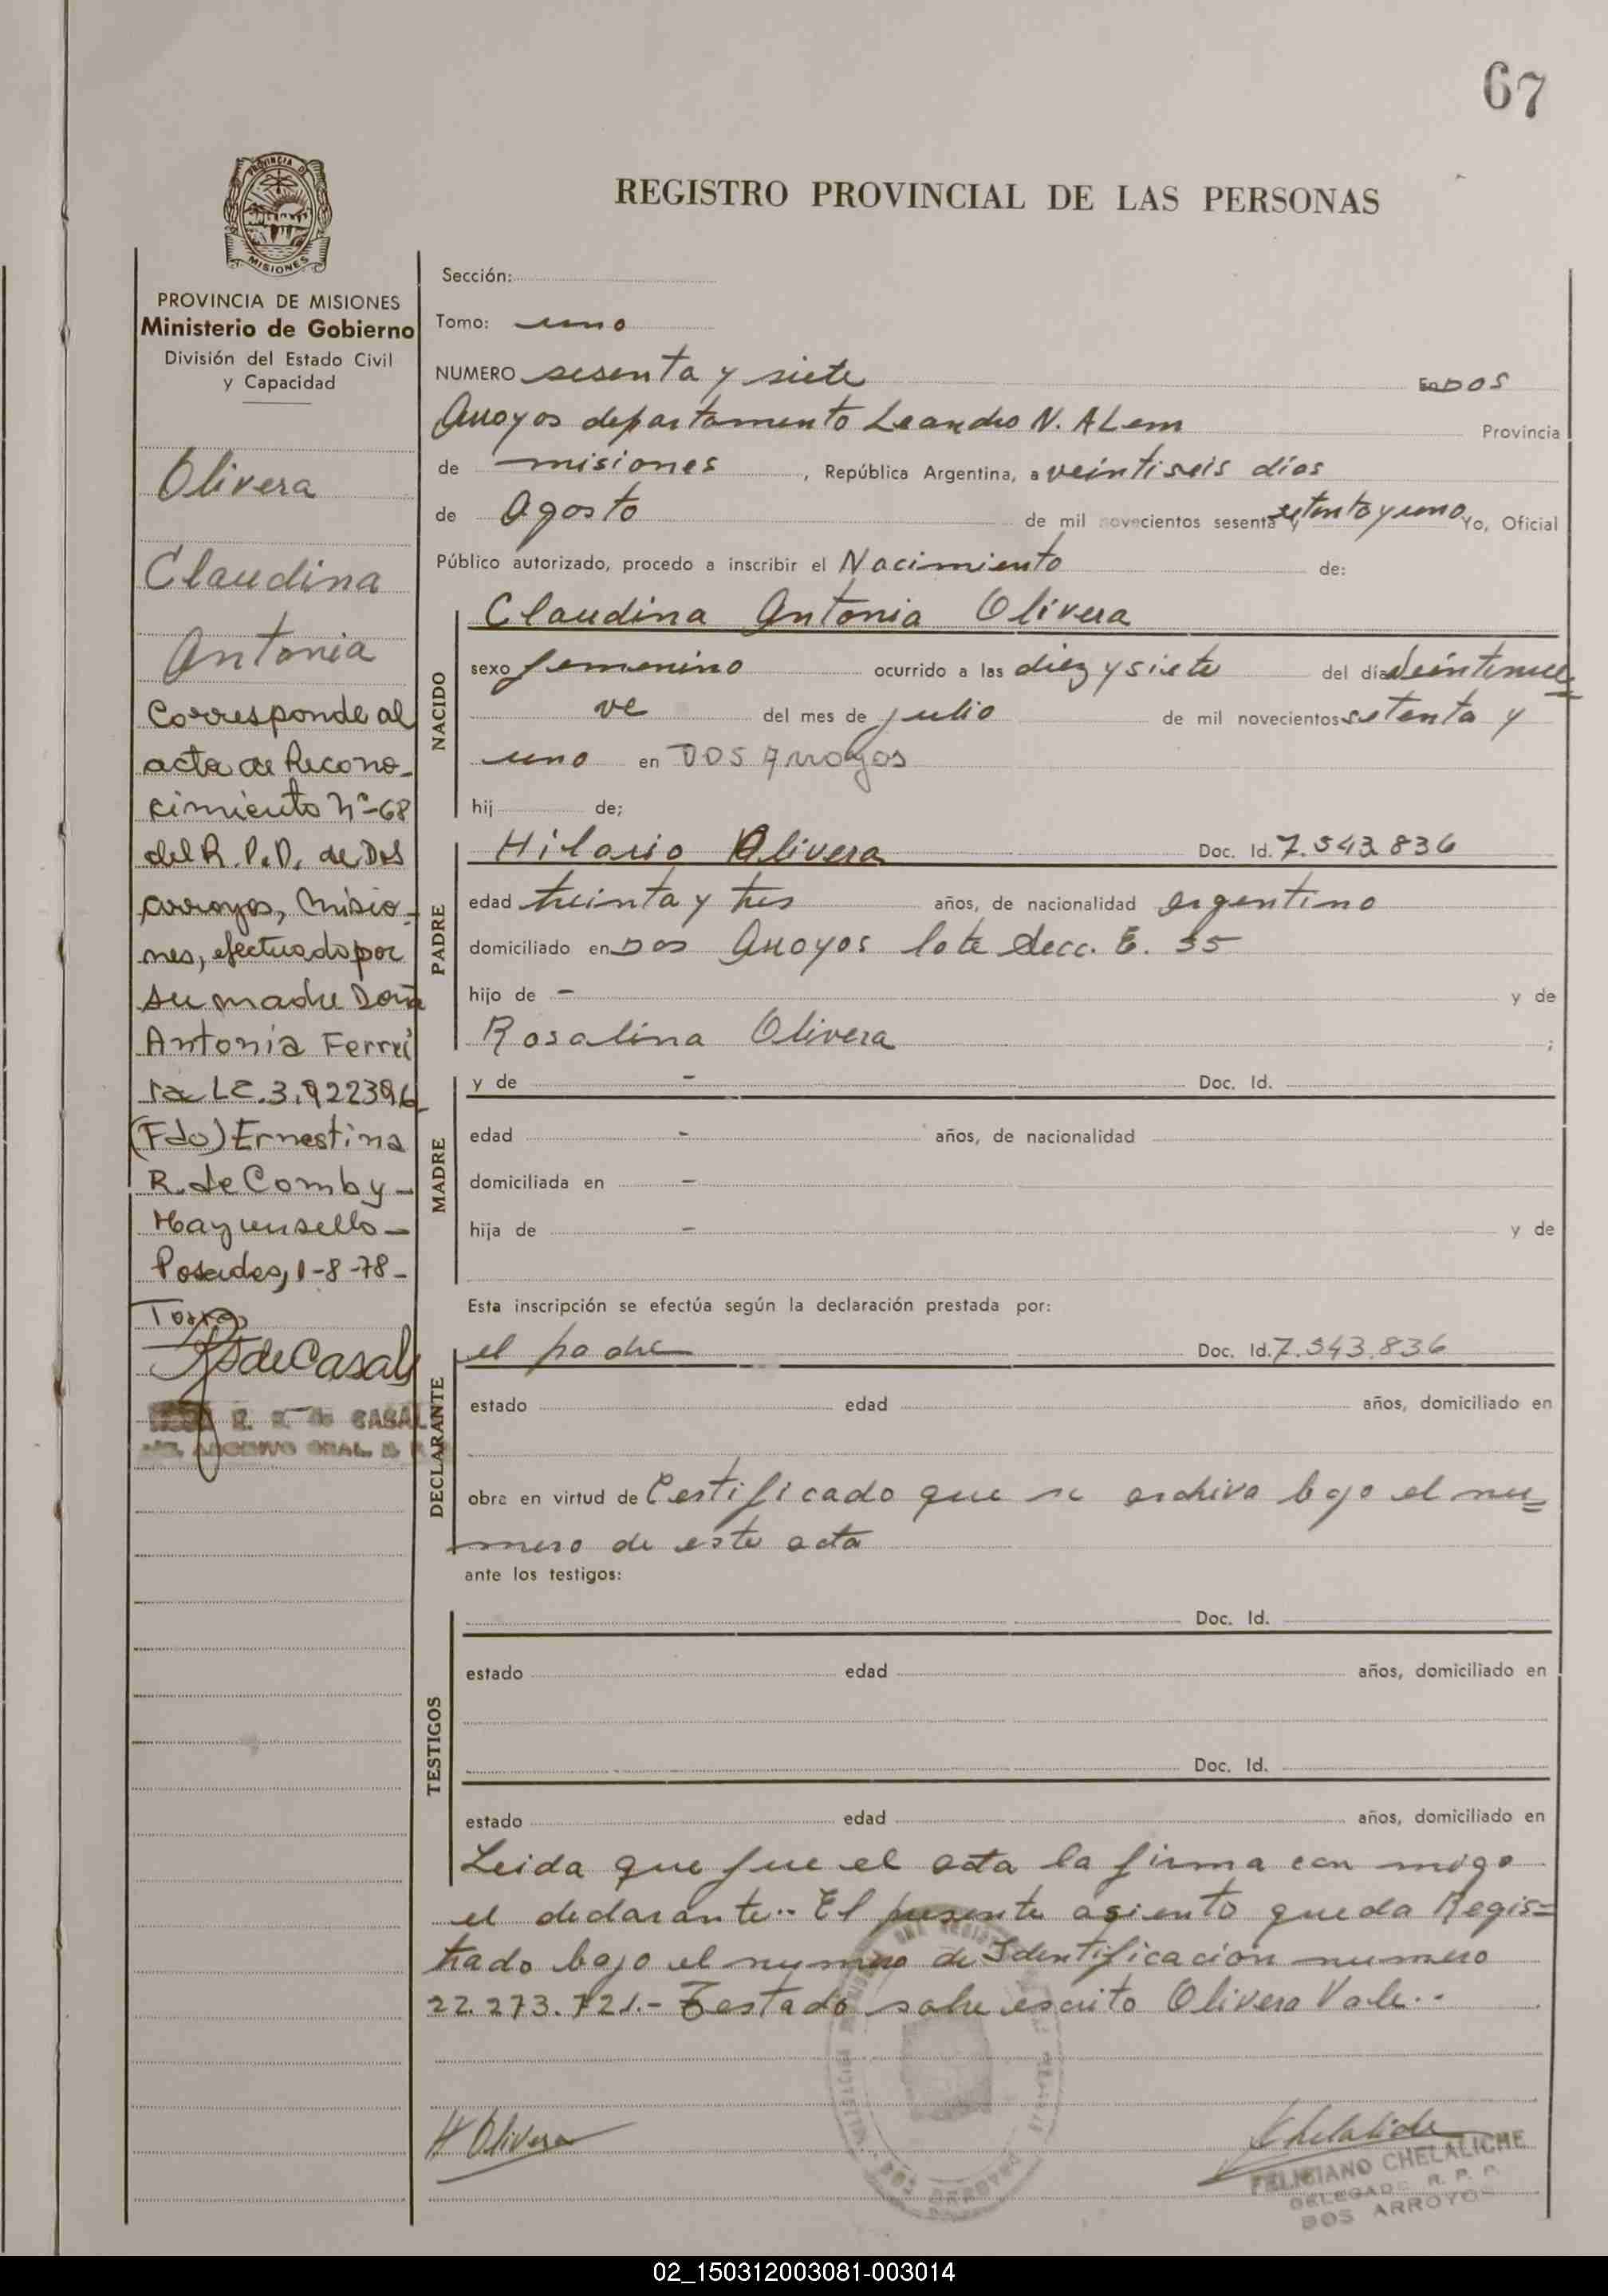 67
PROVINCIA DE
MISIONES
REGISTRO PROVINCIAL DE LAS PERSONAS
PROVINCIA DE MISIONES
Ministerio de Gobierno
División del Estado Civil
y Capacidad
Olivera
Claudina
Antonia
Corresponde al
acta de Recono-
cimiento nº-68
del R. P. P. de Dos
arroyos, Misio-
nes, efectuado por
su madre Doña
Antonia Ferrei
ra LC. 3.922396
(Fdo) Ernestina
R. de Comby-
Hay un sello-
Posadas, 1-8-78-
de Casals
R. de CASAL
Sección:
Tomo: uno
NUMERO sesenta y siete En DOS
Arroyos departamento Leandro N. ALem Provincia
de misiones, República Argentina, a veintiseis días
de Agosto de mil novecientos sesenta y setenta y uno Yo, Oficial
Público autorizado, procedo a inscribir el Nacimiento de:
NACIDO
Claudina Antonia Olivera
sexo femenino ocurrido a las diez y siete del día Veintenue=
ve del mes de julio de mil novecientos setenta y
uno en DOS Arroyos
hij de;
PADRE
Hilario Olivera Doc. Id. 7.543.836
edad treinta y tres años, de nacionalidad argentino
domiciliado en Dos Arroyos lote Secc. E. 35
hijo de - y de
Rosalina Olivera ;
MADRE
y de - Doc. Id.
edad - años, de nacionalidad
domiciliada en -
hija de - y de
Esta inscripción se efectúa según la declaración prestada por:
DECLARANTE
el padre Doc. Id. 7.543.836
estado edad años, domiciliado en
obra en virtud de Certificado que se archiva bajo el nu=
mero de este acta
ante los testigos:
TESTIGOS
Doc. Id.
estado edad años, domiciliado en
Doc. Id.
estado edad años, domiciliado en
Leida que fue el acta la firma con migo
el declarante.. El presente asiento queda Regis=
trado bajo el numero de Identificación numero
22.273.721.- Testado sobre escrito Olivera Vale..
H Olivera
Chelaliche
FELICIANO CHELALICHE
DELEGADO R. P. P.
DOS ARROYOS
DOS ARROYOS
02_150312003081-003014